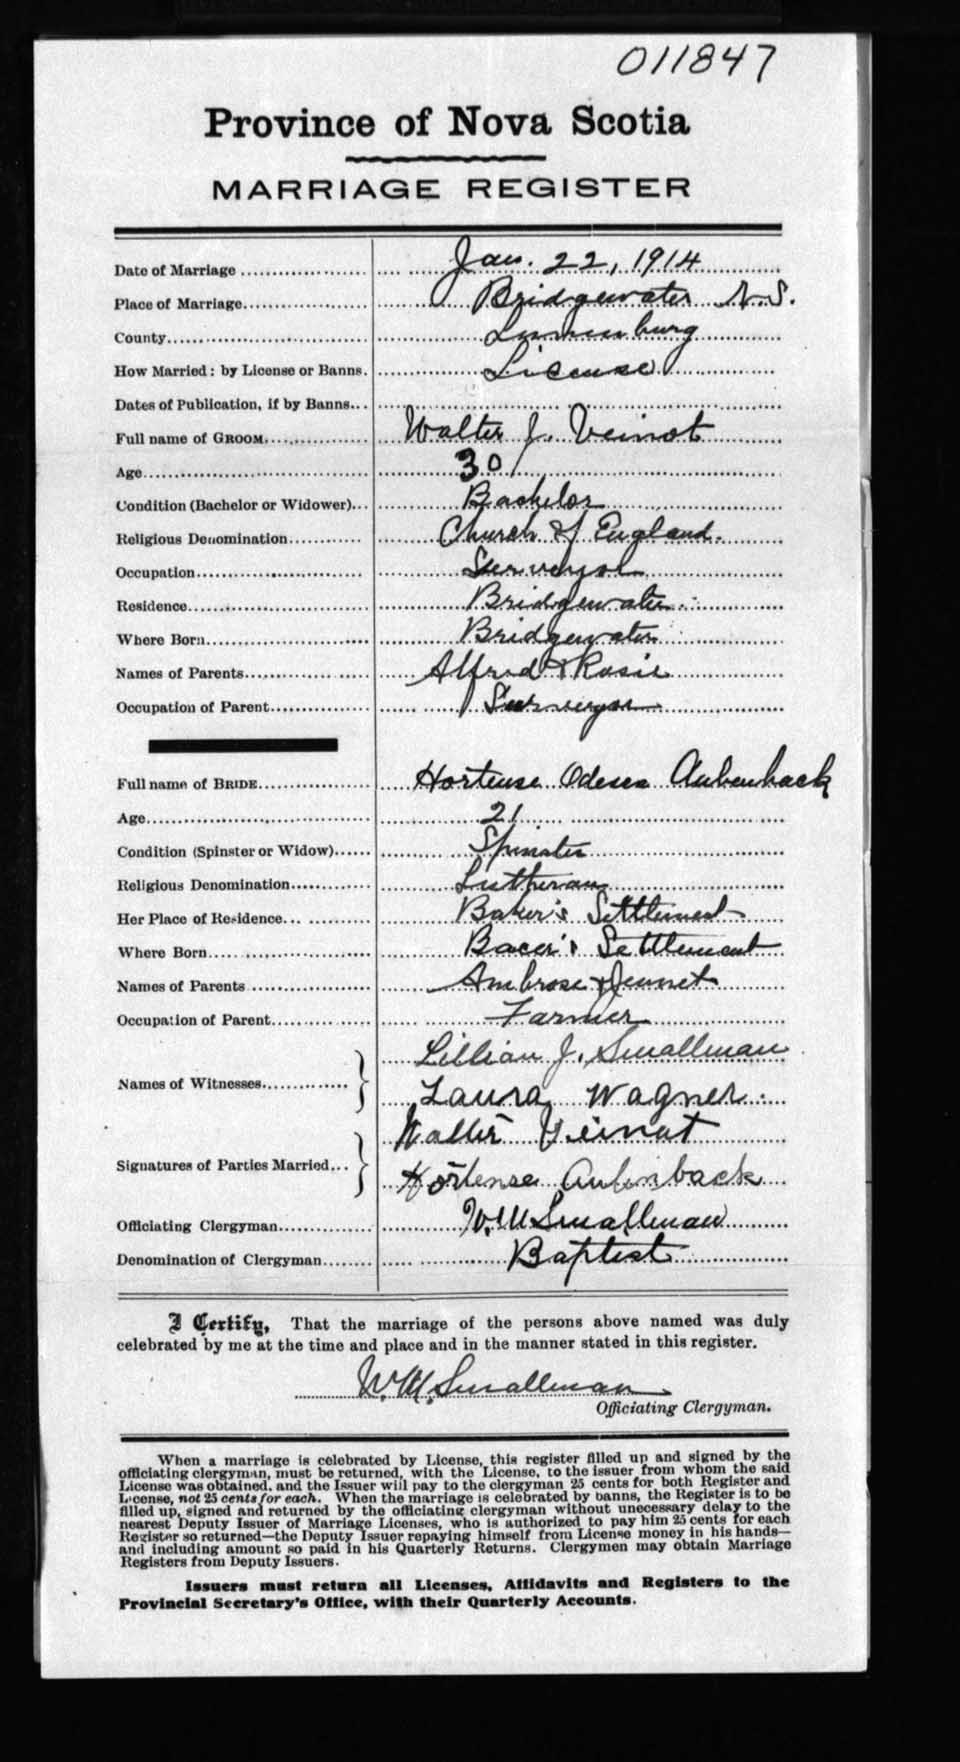 011847
Province of Nova Scotia
MARRIAGE REGISTER
Date of Marriage Jan. 22, 1914
Place of Marriage Bridgewater N.S.
County Lunenburg
How Married: by License or Banns. License
Dates of Publication, if by Banns
Full name of GROOM Walter J. Veinot
Age 30
Condition (Bachelor or Widower) Bachelor
Religious Denomination Church of England.
Occupation Surveyor
Residence Bridgewater
Where Born Bridgewater
Names of Parents Alfred & Rosie
Occupation of Parent Surveyor
Full name of BRIDE Hortense Aubenback
Age 21
Condition (Spinster or Widow) Spinster
Religious Denomination Lutheran
Her Place of Residence Baker's Settlement
Where Born Bacer's Settlement
Names of Parents Ambrose & Jennet
Occupation of Parent Farmer
Names of Witnesses Lillian J. Smallman
Laura Wagner
Signatures of Parties Married Walter Veinot
Hortense Aubinback
Officiating Clergyman W.M. Smallman
Denomination of Clergyman Baptist
I Certify, That the marriage of the persons above named was duly
celebrated by me at the time and place and in the manner stated in this register.
W.M. Smallman
Officiating Clergyman.
When a marriage is celebrated by License, this register filled up and signed by the
officiating clergyman, must be returned, with the License, to the issuer from whom the said
License was obtained, and the Issuer will pay to the clergyman 25 cents for both Register and
License, not 25 cents for each. When the marriage is celebrated by banns, the Register is to be
filled up, signed and returned by the officiating clergyman without unecessary delay to the
nearest Deputy Issuer of Marriage Licenses, who is authorized to pay him 25 cents for each
Register so returned—the Deputy Issuer repaying himself from License money in his hands—
and including amount so paid in his Quarterly Returns. Clergymen may obtain Marriage
Registers from Deputy Issuers.
Issuers must return all Licenses, Affidavits and Registers to the
Provincial Secretary's Office, with their Quarterly Accounts.